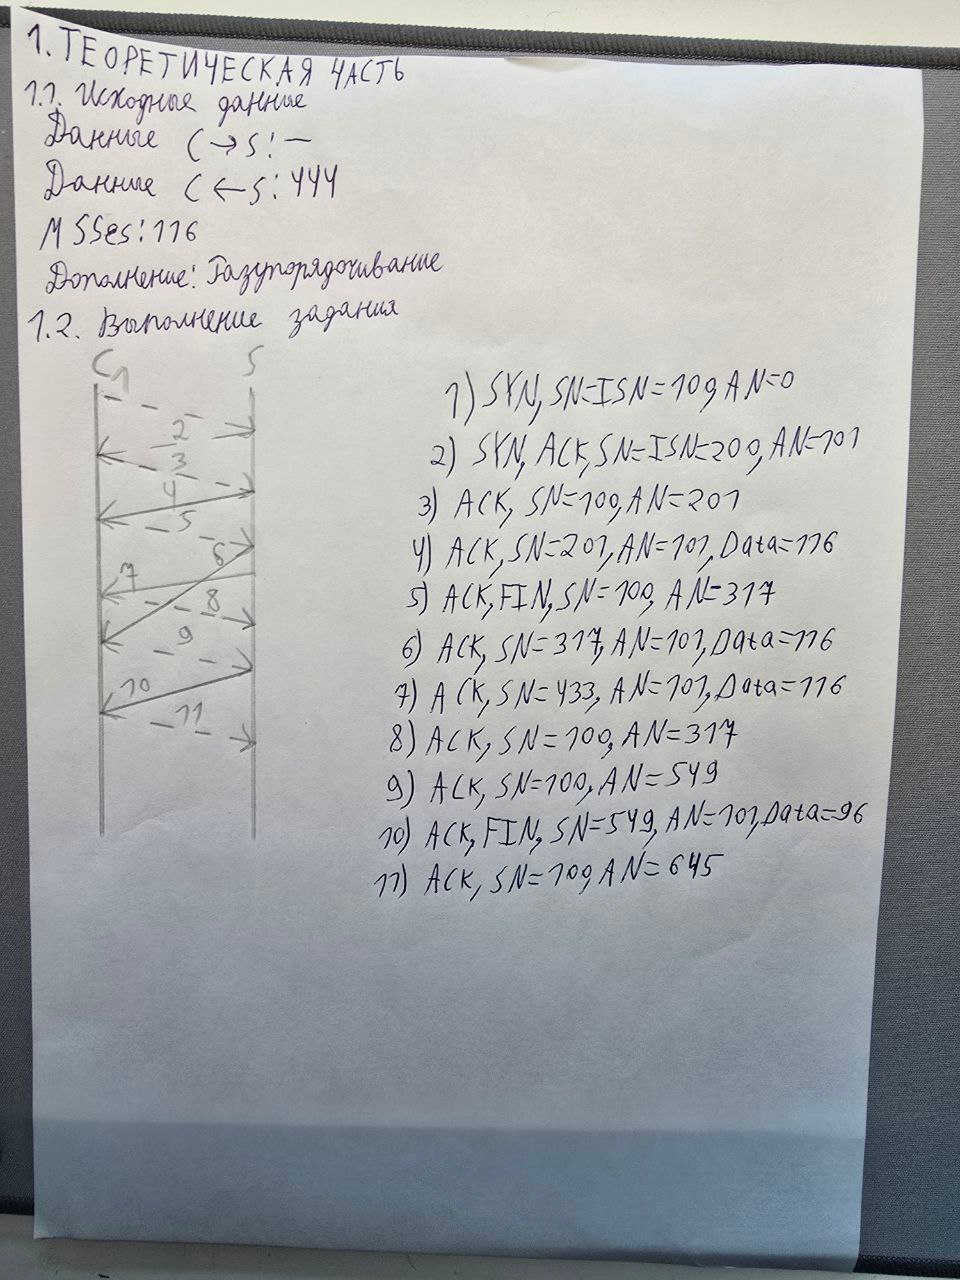 1. ТЕОРЕТИЧЕСКАЯ ЧАСТЬ
1.1. Исходные данные
Данные C → S: —
Данные C ← S: 444
MSSes: 116
Дополнение: Разупорядочивание
1.2. Выполнение задания
C S
1
2
3
4
5
6
7
8
9
10
11
1) SYN, SN=ISN=100, AN=0
2) SYN, ACK, SN=ISN=200, AN=101
3) ACK, SN=100, AN=201
4) ACK, SN=201, AN=101, Data=116
5) ACK, FIN, SN=100, AN=317
6) ACK, SN=317, AN=101, Data=116
7) ACK, SN=433, AN=101, Data=116
8) ACK, SN=100, AN=317
9) ACK, SN=100, AN=549
10) ACK, FIN, SN=549, AN=101, Data=96
11) ACK, SN=100, AN=645